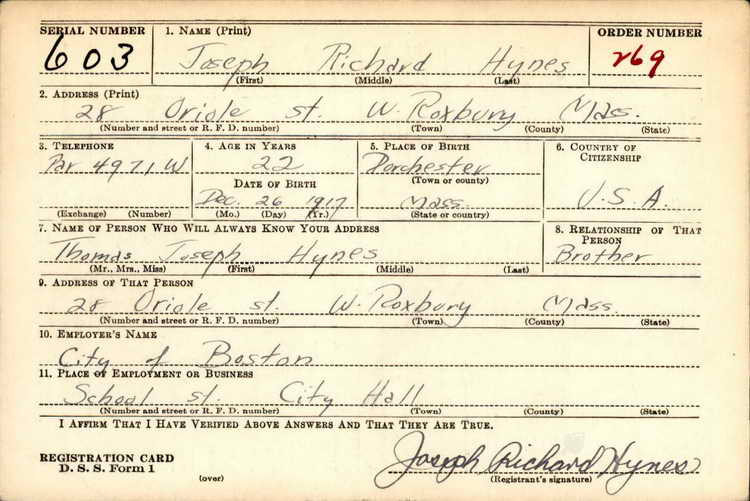 SERIAL NUMBER 1. NAME (Print) ORDER NUMBER
603 Joseph Richard Hynes 269
(First) (Middle) (Last)
2. ADDRESS (Print)
28 Oriole St. W. Roxbury Mass.
(Number and street or R. F. D. number) (Town) (County) (State)
3. TELEPHONE 4. AGE IN YEARS 5. PLACE OF BIRTH 6. COUNTRY OF CITIZENSHIP
Par 4971 W 22 Dorchester
DATE OF BIRTH (Town or county)
Dec. 26 1917 Mass. U.S.A.
(Exchange) (Number) (Mo.) (Day) (Yr.) (State or country)
7. NAME OF PERSON WHO WILL ALWAYS KNOW YOUR ADDRESS 8. RELATIONSHIP OF THAT PERSON
Thomas Joseph Hynes Brother
(Mr., Mrs., Miss) (First) (Middle) (Last)
9. ADDRESS OF THAT PERSON
28 Oriole St. W. Roxbury Mass
(Number and street or R. F. D. number) (Town) (County) (State)
10. EMPLOYER'S NAME
City of Boston
11. PLACE OF EMPLOYMENT OR BUSINESS
School St. City Hall
(Number and street or R. F. D. number) (Town) (County) (State)
I AFFIRM THAT I HAVE VERIFIED ABOVE ANSWERS AND THAT THEY ARE TRUE.
REGISTRATION CARD Joseph Richard Hynes
D. S. S. Form 1 (over) (Registrant's signature)